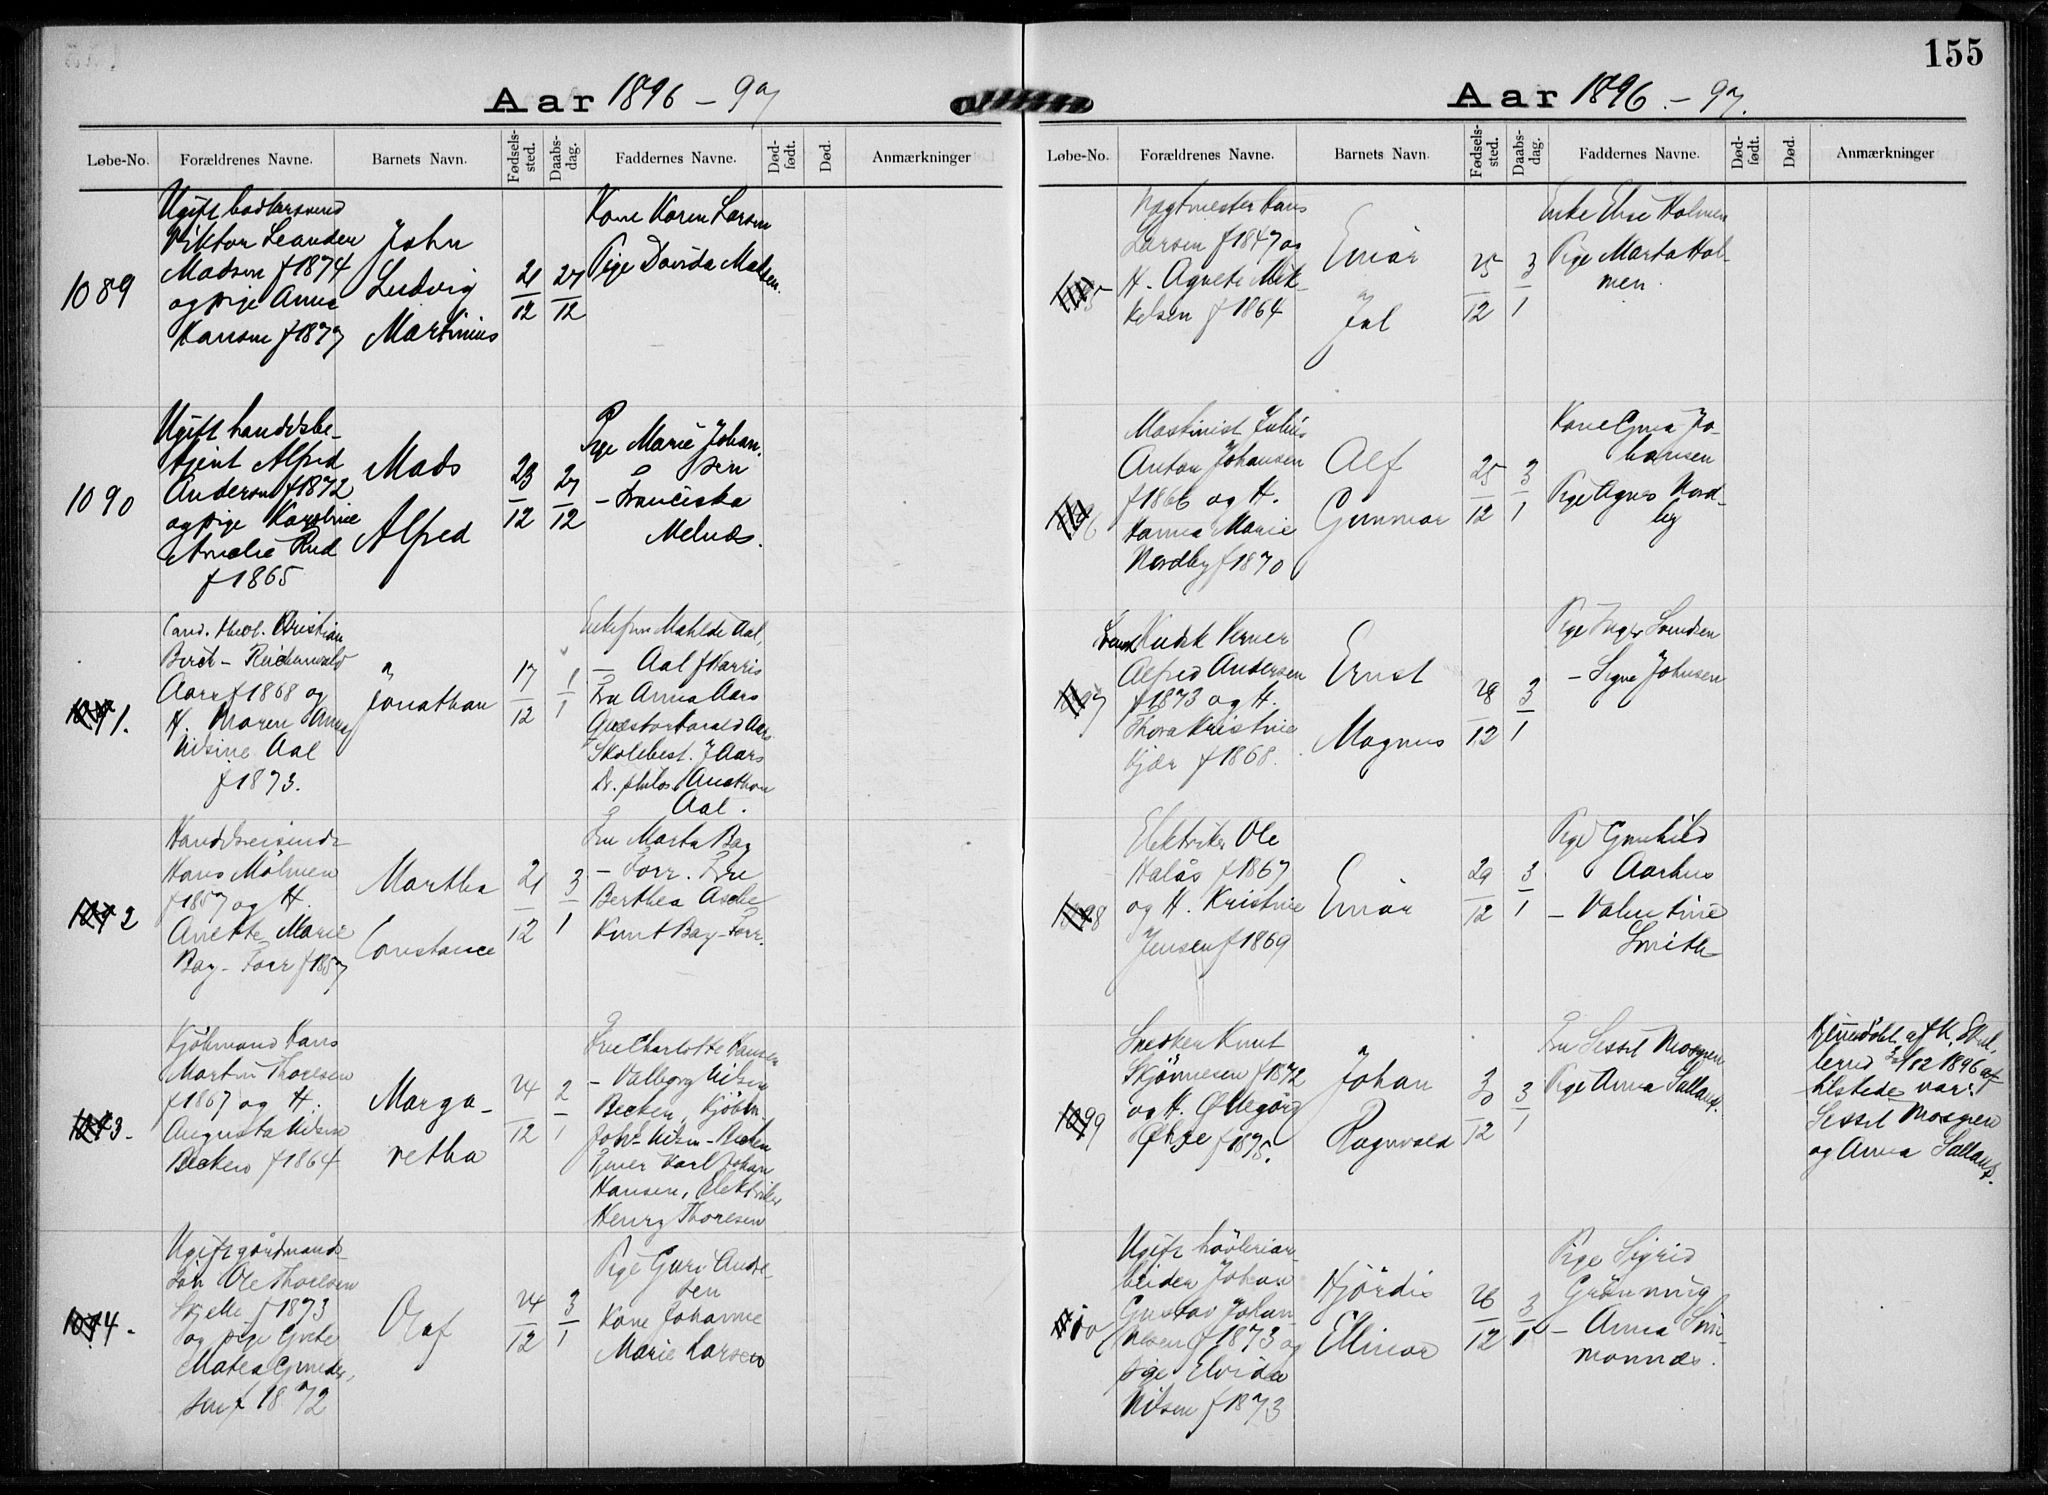 Aar 1896-97
Løbe-No.
Forældrenes Navne.
Barnets Navn.
Fødsels-
sted.
Daabs-
dag.
Faddernes Navne.
Død-
født.
Død.
Anmærkninger
1089
Ugift
Viktor Leander
Madsen f 1874
og pige Anna
Hansen f 1877
John
Ludvig
Martinius
21
12
27
12
Kone Karen Larsen
Pige Davida Madsen.
1090
Ugift handelsbe-
tjent Alfred
Andersen f 1872
og pige Karoline
Amalie Rud
f 1865
Mads
Alfred
23
12
27
12
Pige Marie Johan-
sen
- Franciska
Melnæs.
1.
Cand. theol. Kristian
Birch-Reichenwald
Aars f 1868 og
H. Maren Anna
Nilsine Aal
f 1873.
Jonathan
17
12
1
1
Enkefru Mathilde Aal,
- Aal f Harris
Fru Anna Aars
Quæstor Harald Aars
Skolebest. J Aars
Dr. philos Anathon
Aal.
2
Handelsreisende
Hans Mölmen
f 1857 og H.
Anette Marie
Bay-Forr f 1857
Martha
Constance
21
12
3
1
Fru Marta Bay
- Forr. Fru
Berthea Asche
Knut Bay-Forr.
3.
Kjöbmand Hans
Martin Thoresen
f 1867 og H.
Augusta Nilsen
Becken f 1864
Marga-
retha
24
12
2
1
Fru Charlotte Hansen
- Valborg Nilsen
Becken, Kjöbm.
Johs Nilsen-Becken
Karl Johan
Hansen, Elektriker
Henry Thoresen
4.
Ugift gårdmands-
sön Ole Thoresen
f 1873
og pige Grete
Matea
sen f 1872
Olaf
24
12
3
1
Pige Guri Ande-
sen
Kone Johanne
Marie Larsen
155
Aar 1896-97.
Løbe-No.
Forældrenes Navne.
Barnets Navn.
Fødsels-
sted.
Daabs-
dag.
Faddernes Navne.
Død-
født.
Død.
Anmærkninger
5
Vagtmester Hans
Larsen f 1847 og
H. Agnete Mik-
kelsen f 1864
Einar
Jal
25
12
3
1
Enke Else Holmen
Pige Marta Hol-
men.
6
Maskinist Julius
Anton Johansen
f 1866 og H.
Hanna Marie
Nordby f 1870
Alf
Gunnar
25
12
3
1
Kone Gina Jo-
hansen
Pige Agnes Nord-
by
7
Verner
Alfred Andersen
f 1873 og H.
Thora Kristine
Kjær f 1868.
Ernst
Magnus
28
12
3
1
Pige Inga Svendsen
- Signe Johnsen
8
Elektriker Ole
Halås f 1867
og H. Kristine
Jensen f 1869
Einar
29
12
3
1
Pige Gunhild
Aarhus
- Valentine
Smith
9
Snedker Knut
f 1872
og H.
f 1875.
Johan
Ragnvald
30
12
3
1
Fru Sessel Mosgren
Pige Anna
Hjemmedöbt af K.
30/12 1896
tilstede var:
Sessel Mosgren
og Anna
Ugift hövleriar-
beider Johan
Gustav Johan-
nesen f 1873 og
pige Elvida
Nilsen f 1873
Hjördis
Ellinor
26
12
3
1
Pige Sigrid
Grönning
- Anna Sim-
monnæs.